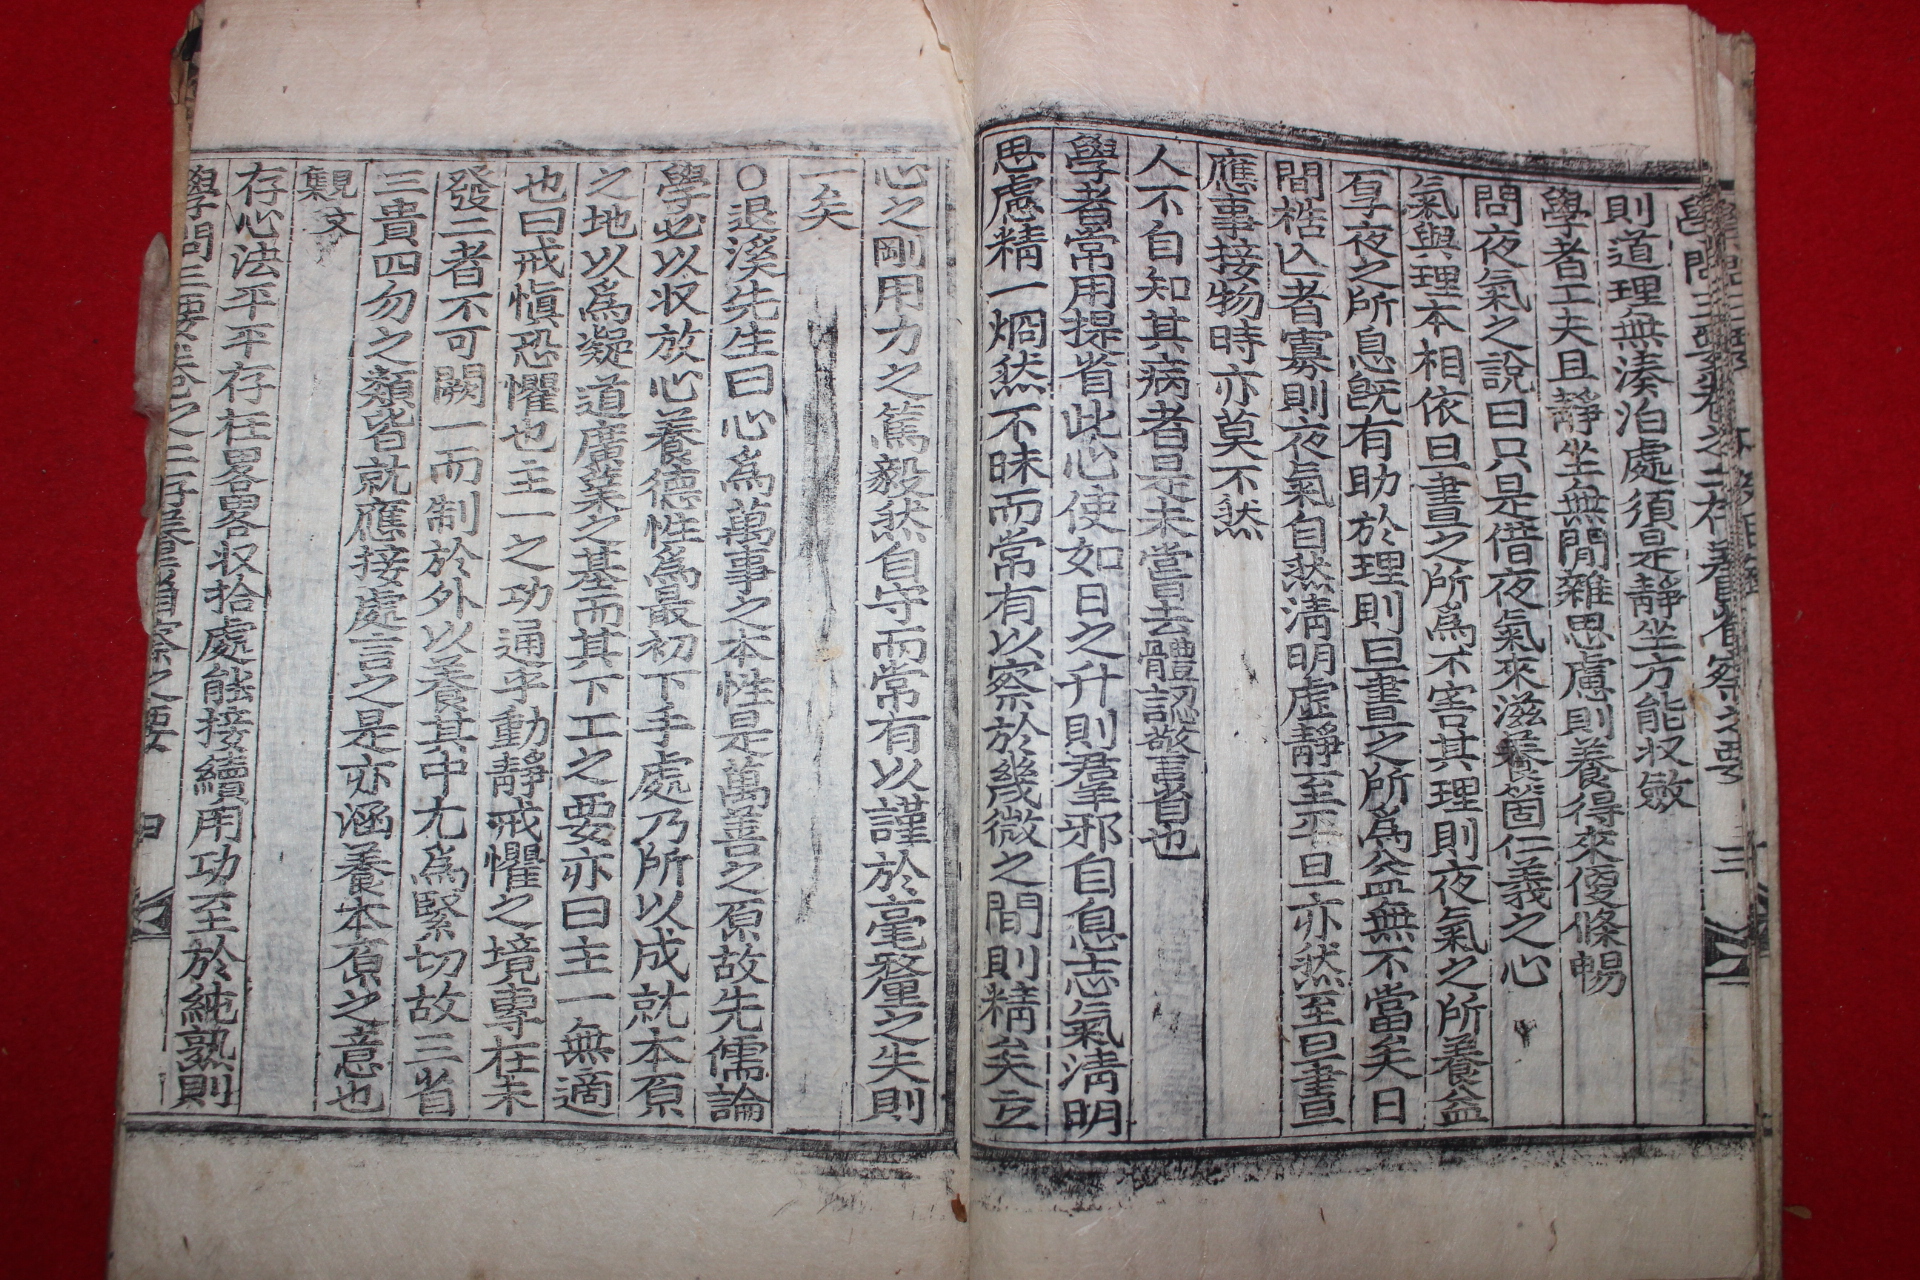 學問三要卷之二存養省察之要 三
則道理無湊泊處須是靜坐方能収斂
學者工夫且靜坐無閒雜思慮則養得來便條暢
問夜氣之說曰只是借夜氣來滋養箇仁義之心
氣與理本相依旦晝之所爲不害其理則夜氣之所養益
厚夜之所息旣有助於理則旦晝之所爲益無不當矣日
間梏亡者寡則夜氣自然淸明虛靜至平旦亦然至旦晝
應事接物時亦莫不然
人不自知其病者是未嘗去體認警省也
學者常用提省此心使如日之升則羣邪自息志氣淸明
思慮精一烱然不昧而常有以察於幾微之間則精矣立
心之剛用力之篤毅然自守而常有以謹於毫釐之失則
一矣
○退溪先生曰心爲萬事之本性是萬善之原故先儒論
學必以収放心養德性爲最初下手處乃所以成就本原
之地以爲凝道廣業之基而其下工之要亦曰主一無適
也曰戒愼恐懼也主一之功通乎動靜戒懼之境專在未
發二者不可闕一而制於外以養其中尤爲緊切故三省
三貴四勿之類皆就應接處言之是亦涵養本原之意也
觀文
集
存心法平平存在畧畧収拾處能接續用功至於純熟則
學問三要卷之二存養省察之要 四